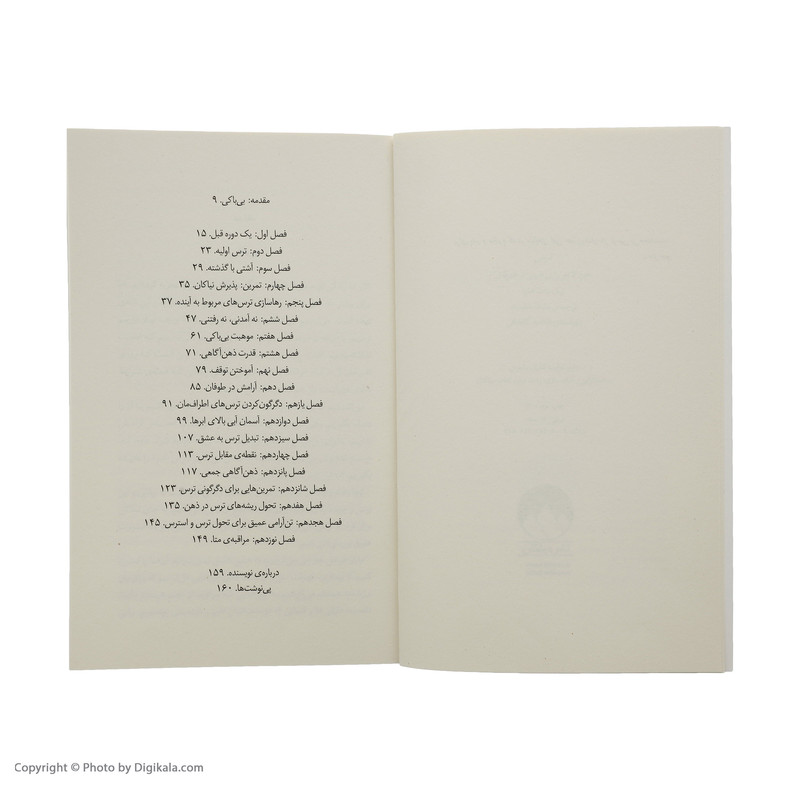 مقدمه: بی‌باکی. ۹
فصل اول: یک دوره قبل. ۱۵
فصل دوم: ترس اولیه. ۲۳
فصل سوم: آشتی با گذشته. ۲۹
فصل چهارم: تمرین: پذیرش نیاکان. ۳۵
فصل پنجم: رهاسازی ترس‌های مربوط به آینده. ۳۷
فصل ششم: نه آمدنی، نه رفتنی. ۴۷
فصل هفتم: موهبت بی‌باکی. ۶۱
فصل هشتم: قدرت ذهن‌آگاهی. ۷۱
فصل نهم: آموختن توقف. ۷۹
فصل دهم: آرامش در طوفان. ۸۵
فصل یازدهم: دگرگون‌کردن ترس‌های اطراف‌مان. ۹۱
فصل دوازدهم: آسمان آبی بالای ابرها. ۹۹
فصل سیزدهم: تبدیل ترس به عشق. ۱۰۷
فصل چهاردهم: نقطه‌ی مقابل ترس. ۱۱۳
فصل پانزدهم: ذهن‌آگاهی جمعی. ۱۱۷
فصل شانزدهم: تمرین‌هایی برای دگرگونی ترس. ۱۲۳
فصل هفدهم: تحول ریشه‌های ترس در ذهن. ۱۳۵
فصل هجدهم: تن‌آرامی عمیق برای تحول ترس و استرس. ۱۴۵
فصل نوزدهم: مراقبه‌ی متا. ۱۴۹
درباره‌ی نویسنده. ۱۵۹
پی‌نوشت‌ها. ۱۶۰
Copyright © Photo by Digikala.com